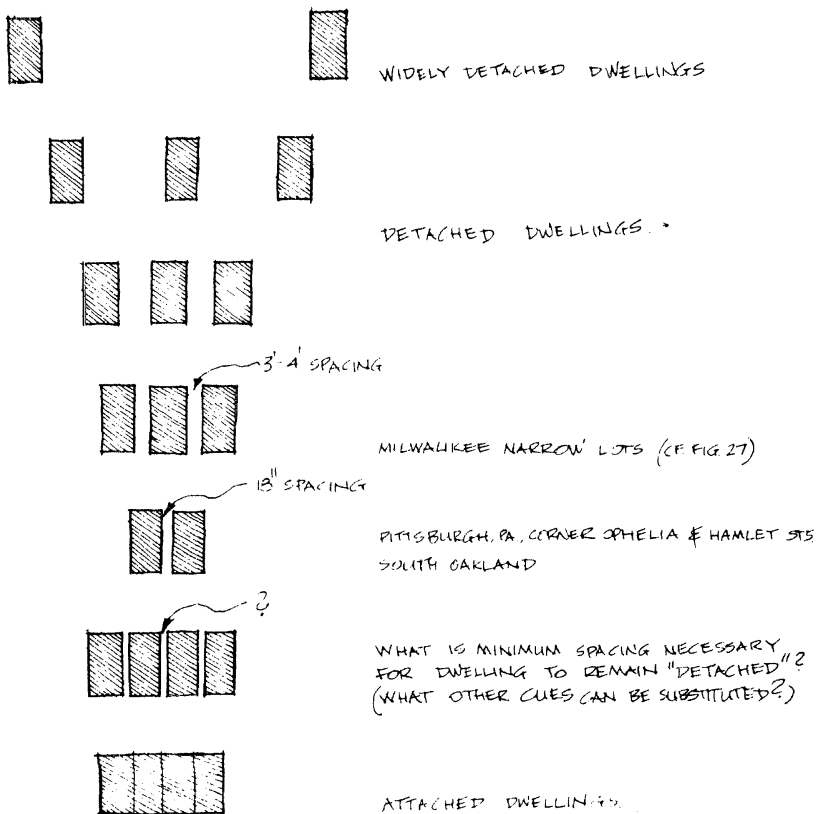 WIDELY DETACHED DWELLINGS
DETACHED DWELLINGS.
3'-4' SPACING
MILWAUKEE NARROW LOTS (CF. FIG. 27)
18" SPACING
PITTSBURGH, PA, CORNER OPHELIA & HAMLET STS
SOUTH OAKLAND
?
WHAT IS MINIMUM SPACING NECESSARY
FOR DWELLING TO REMAIN "DETACHED"?
(WHAT OTHER CUES CAN BE SUBSTITUTED?)
ATTACHED DWELLINGS.